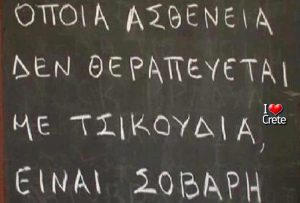 ΟΠΟΙΑ ΑΣΘΕΝΕΙΑ
ΔΕΝ ΘΕΡΑΠΕΥΕΤΑΙ
ΜΕ ΤΣΙΚΟΥΔΙΑ,
ΕΙΝΑΙ ΣΟΒΑΡΗ
I
Crete